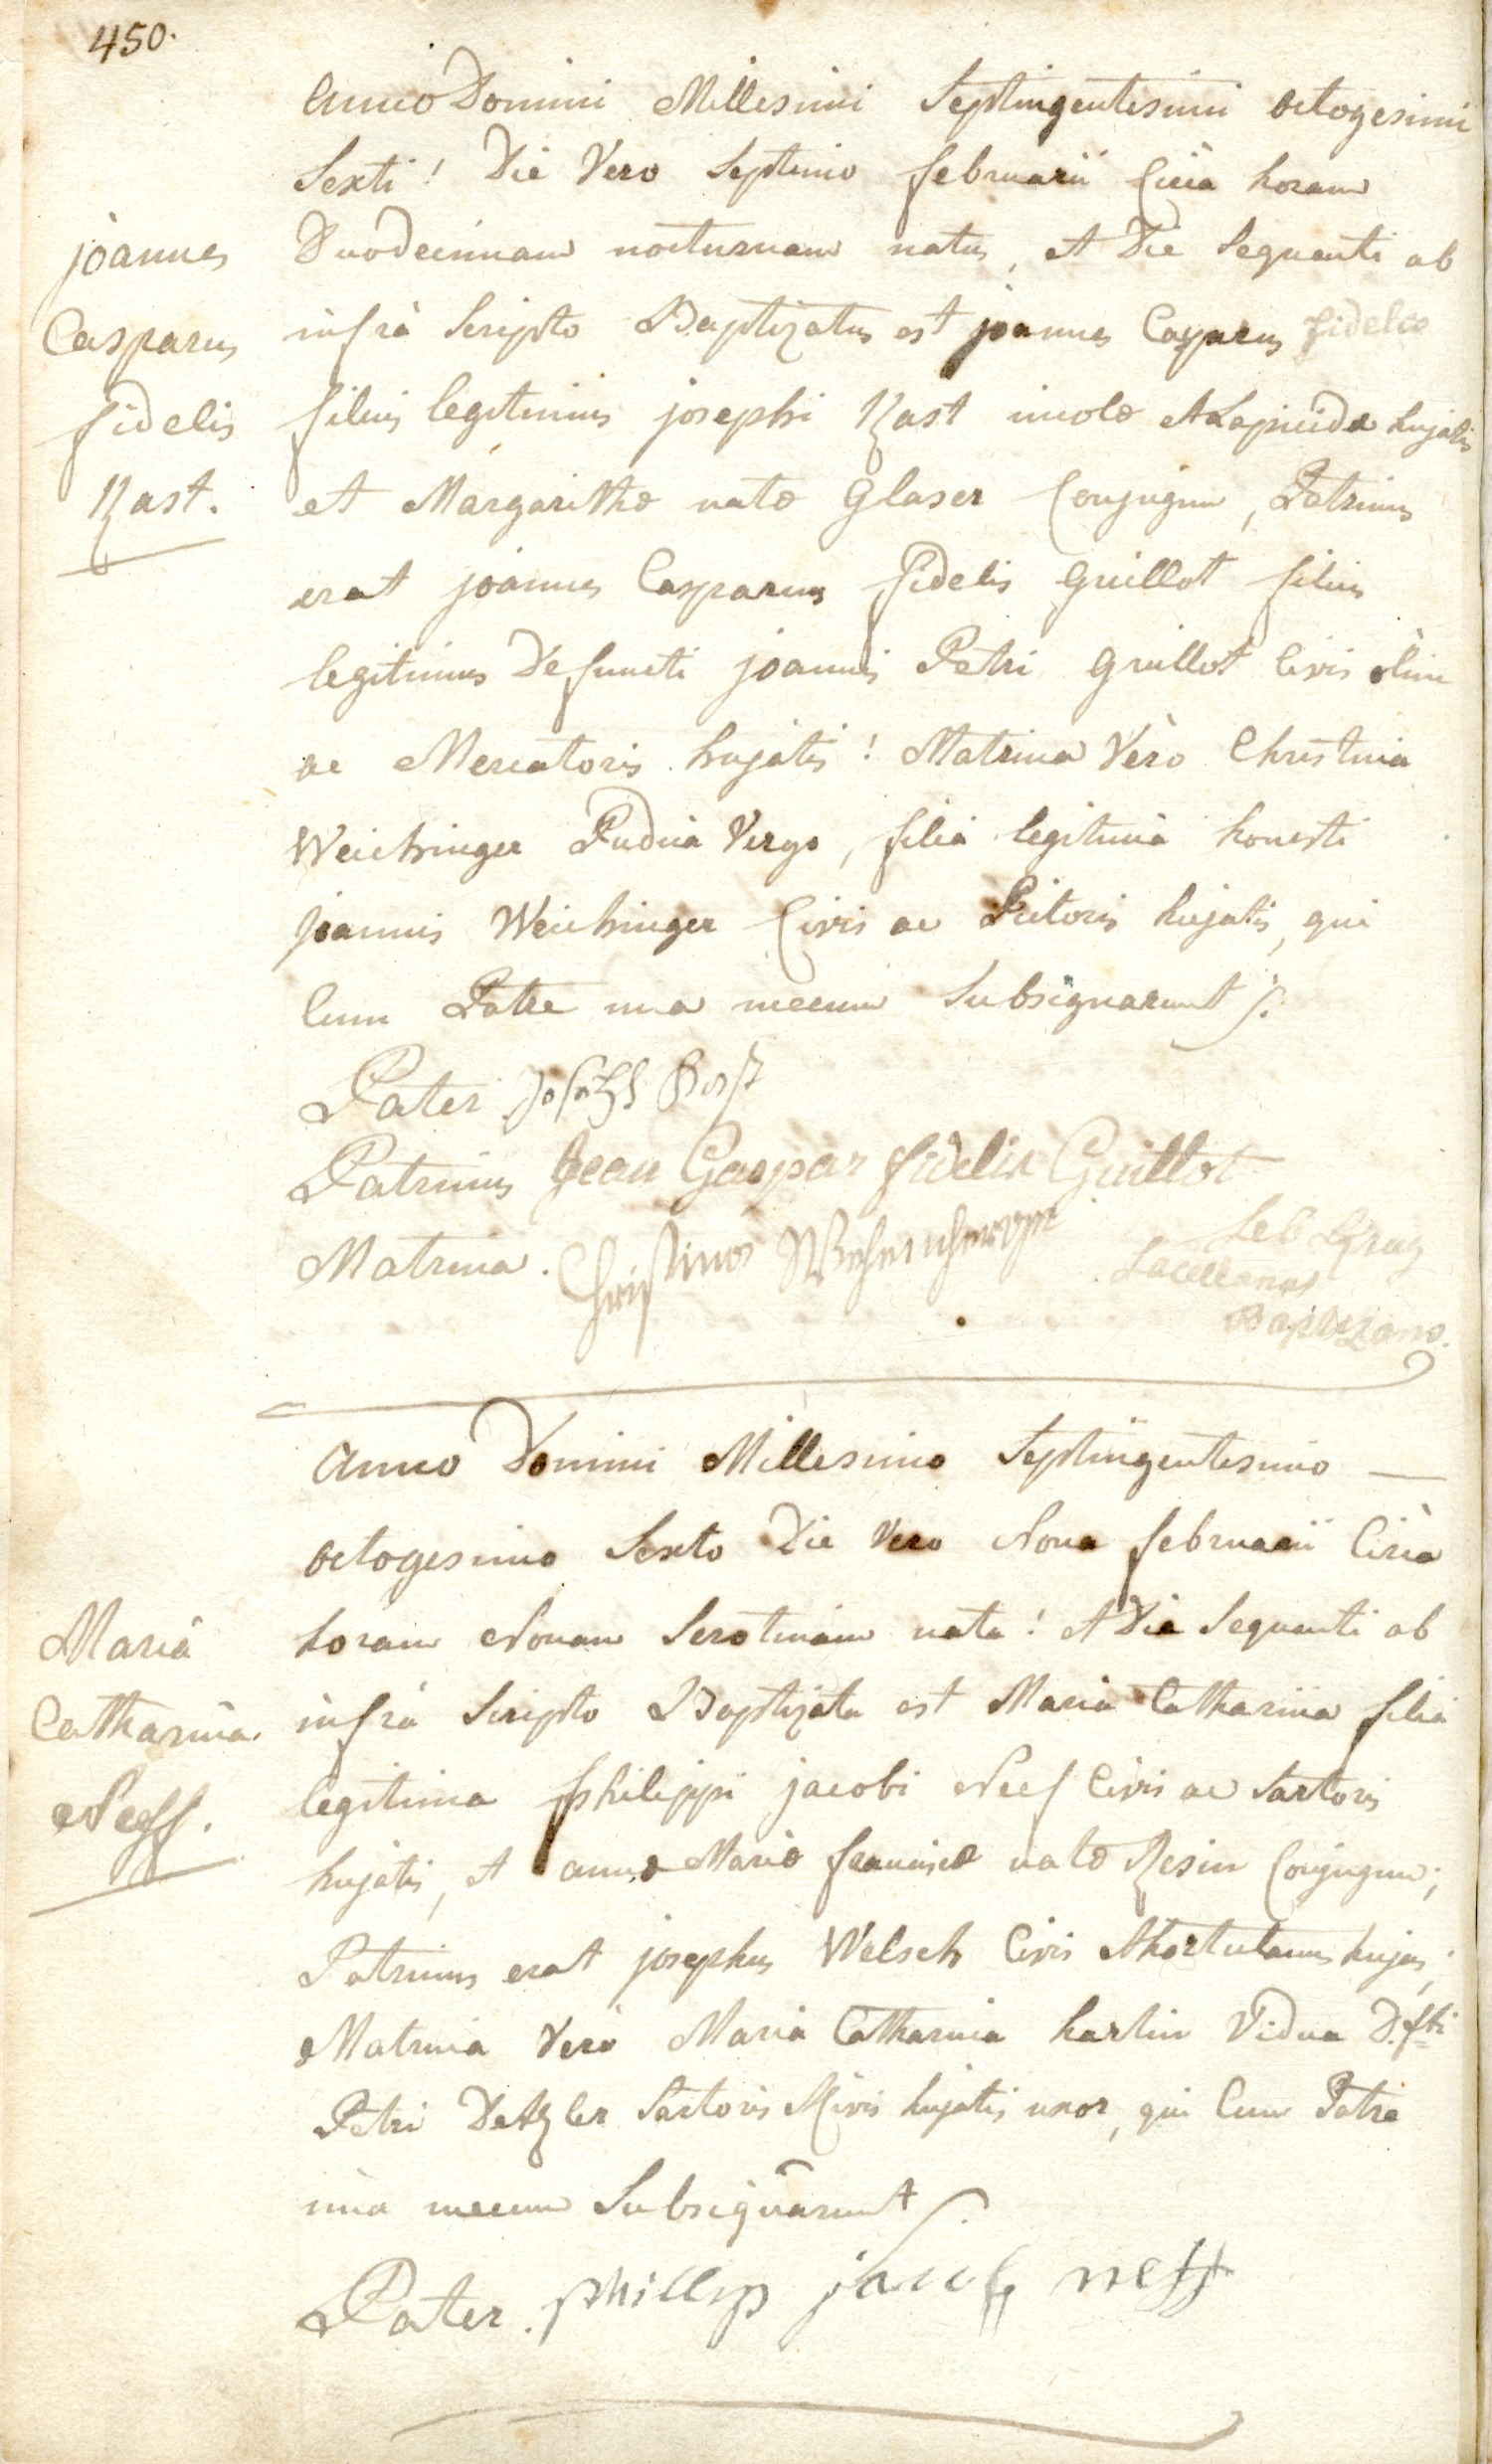 450.
Anno Domini Millesimi Septingentesimi octogesimi
Sexti! Die Vero Septimo februarii Circa horam
Duodecimam nocturnam natus, et Die Sequenti ab
infrà Scripto Baptizatus est joannes Casparus fidelis
filius legitimus josephi Rast incolæ et Lapicidæ hujatis
et Margarithæ natæ Glaser Conjugum, Patrinus
erat joannes Casparus fidelis Guillot filius
legitimus Defuncti joannis Petri Guillot Civis olim
ac Mercatoris hujatis! Matrina Vero Christina
Weichinger Pudica Virgo, filia legitima honesti
joannis Weichinger Civis ac Pictoris hujatis, qui
Cum Patre una mecum Subsignarunt
joannes
Casparus
fidelis
Rast.
Pater Joseph
Patrinus Jean Gaspar fidelis Guillot
Matrina. Christina
Sacellanus
Baptizans.
Anno Domini Millesimo Septingentesimo —
octogesimo Sexto Die Vero Nona februarii Circa
horam Nonam Serotinam nata! et Die Sequenti ab
infrà Scripto Baptizata est Maria Catharina filia
legitima Philippi jacobi Neef Civis ac Sartoris
hujatis, et annæ Mariæ franciscæ natæ Resin Conjugum;
Patrinus erat josephus Welsch Civis et hortulanus hujas,
Matrina Vero Maria Catharina hartin Vidua D.fti
Petri Detzler Sartoris et Civis hujatis uxor, qui Cum Patre
una mecum Subsignarunt
Maria
Catharina
Neff.
Pater. phillip jacob neff